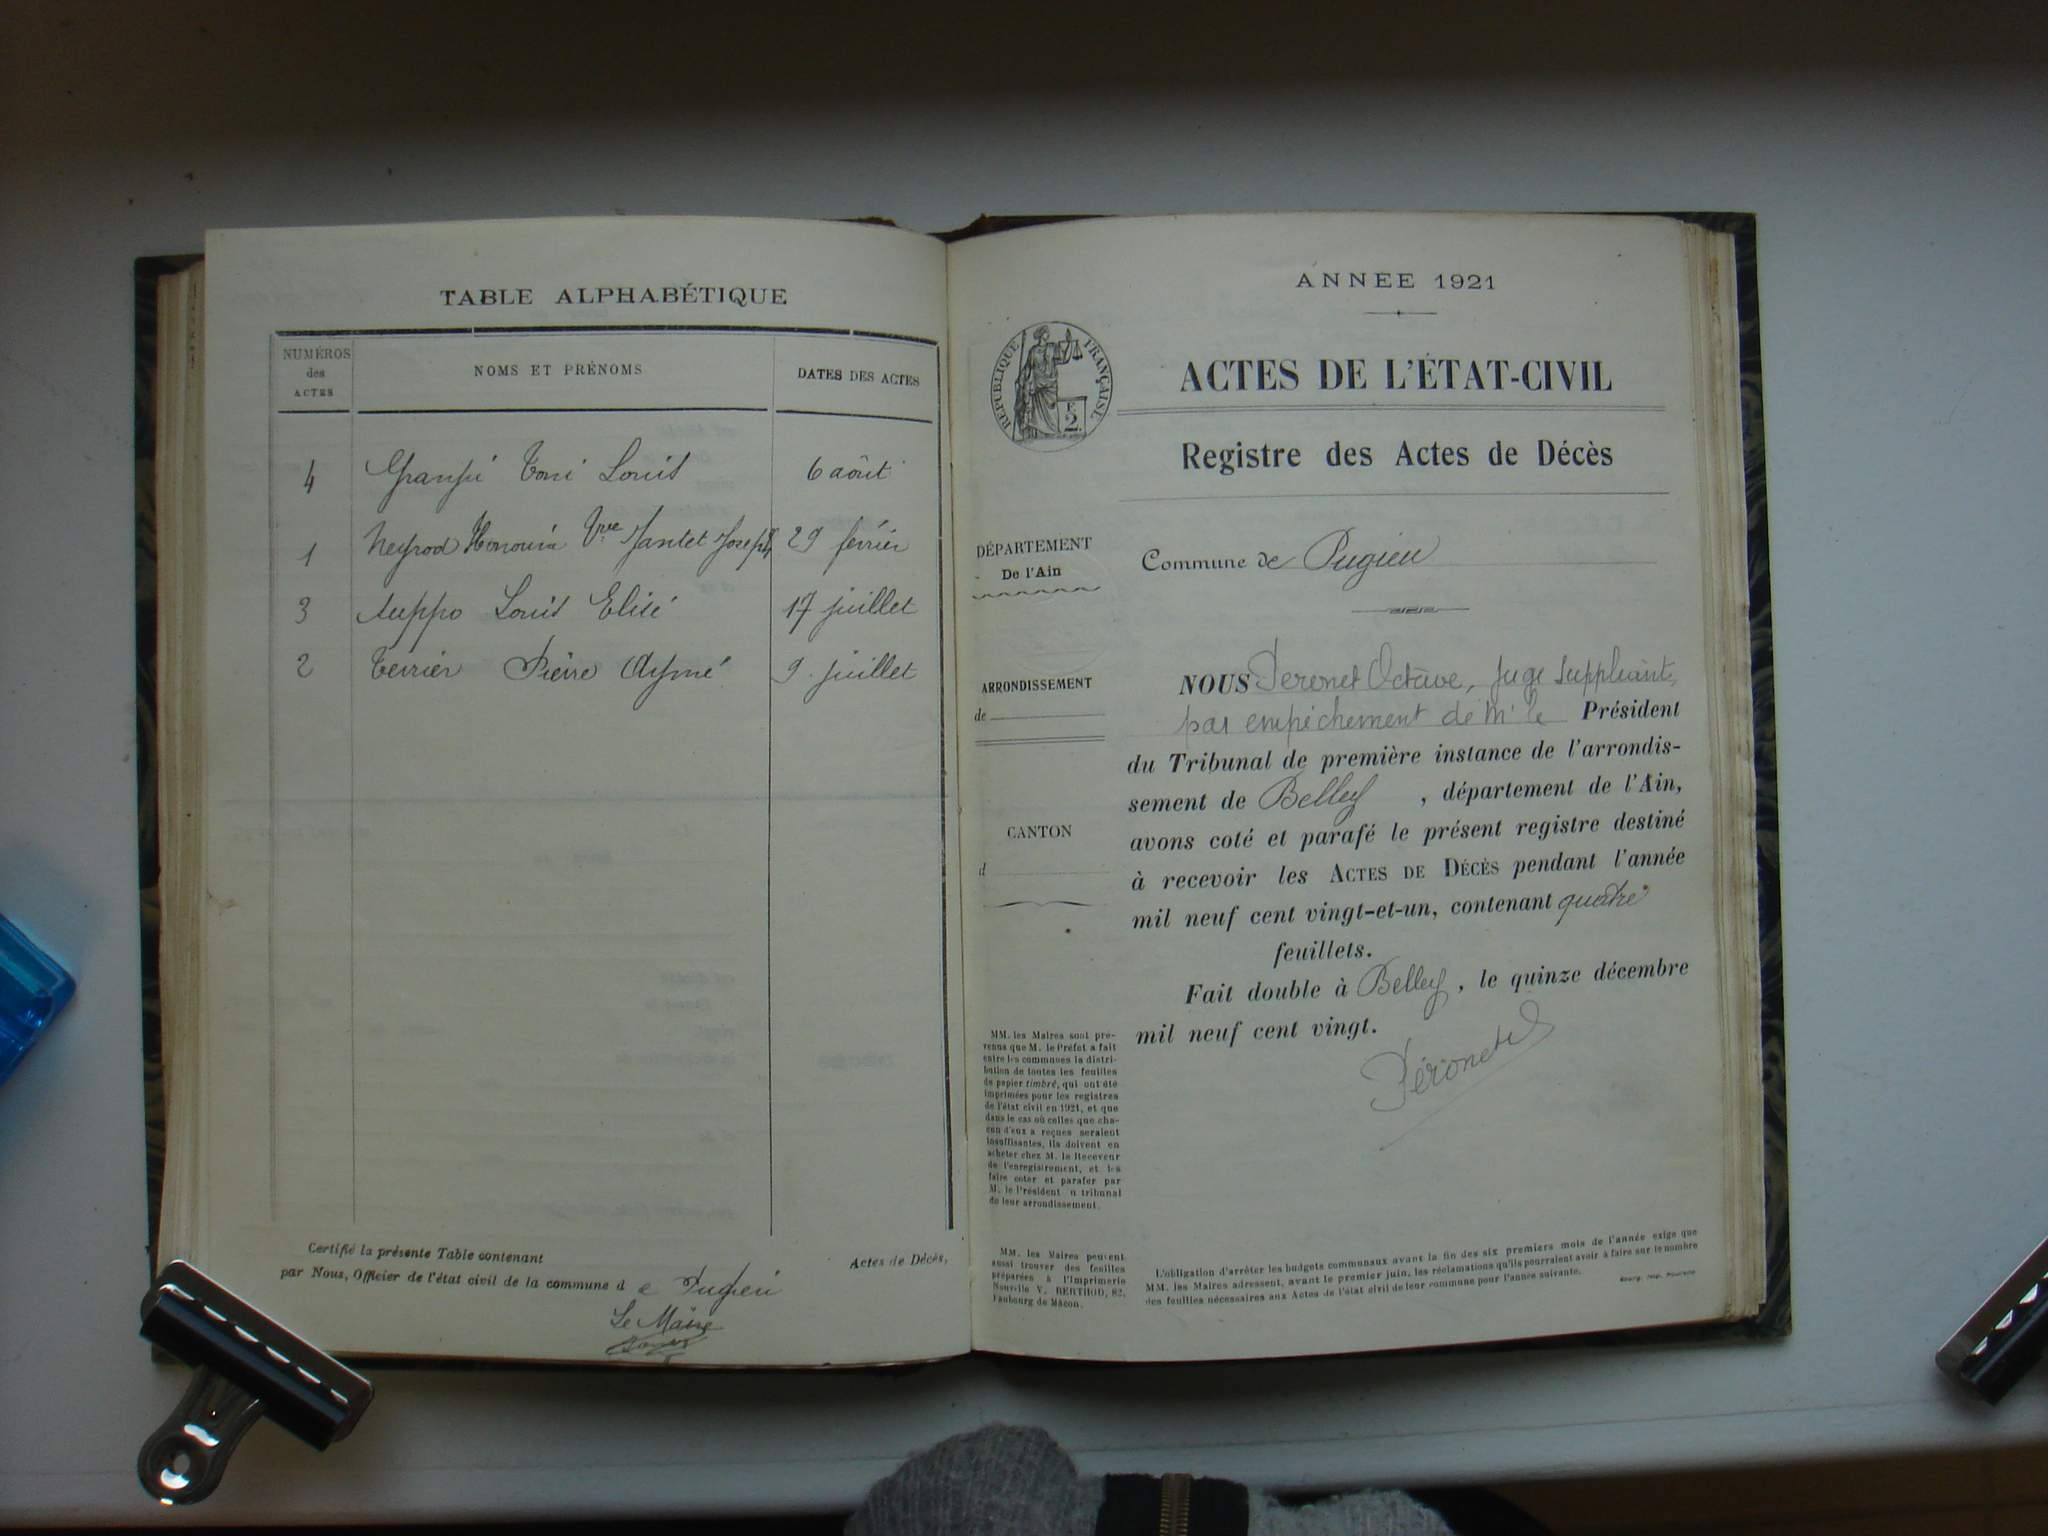 TABLE ALPHABÉTIQUE
NUMÉROS
des
ACTES
NOMS ET PRÉNOMS
DATES DES ACTES
4 Louis 6 août
1 Neyrod Vve Joseph 29 février
3 Louis Elisé 17 juillet
2 Terrier Pierre Aymé 9 juillet
Certifié la présente Table contenant Actes de Décès,
par Nous, Officier de l'état civil de la commune d e Pugieu
Le Maire
ANNEE 1921
RÉPUBLIQUE FRANÇAISE
2
ACTES DE L'ÉTAT-CIVIL
Registre des Actes de Décès
DÉPARTEMENT
De l'Ain
Commune de Pugieu
ARRONDISSEMENT
de
CANTON
d
NOUS Peronet Octave, Juge Suppléant,
par empêchement de Mr le Président
du Tribunal de première instance de l'arrondis-
sement de Belley, département de l'Ain,
avons coté et parafé le présent registre destiné
à recevoir les ACTES DE DÉCÈS pendant l'année
mil neuf cent vingt-et-un, contenant quatre
feuillets.
Fait double à Belley, le quinze décembre
mil neuf cent vingt.
Péronet
MM. les Maires sont pré-
venus que M. le Préfet a fait
entre les communes la distri-
bution de toutes les feuilles
de papier timbré, qui ont été
imprimées pour les registres
de l'état civil en 1921, et que
dans le cas où celles que cha-
cun d'eux a reçues seraient
insuffisantes, ils doivent en
acheter chez M. le Receveur
de l'enregistrement, et les
faire coter et parafer par
M. le Président u tribunal
de leur arrondissement.
MM. les Maires peuvent
aussi trouver des feuilles
préparées à l'Imprimerie
Nouvelle V. BERTHOD, 82,
Faubourg de Mâcon.
L'obligation d'arrêter les budgets communaux avant la fin des six premiers mois de l'année exige que
MM. les Maires adressent, avant le premier juin, les réclamations qu'ils pourraient avoir à faire sur le nombre
des feuilles nécessaires aux Actes de l'état civil de leur commune pour l'année suivante.